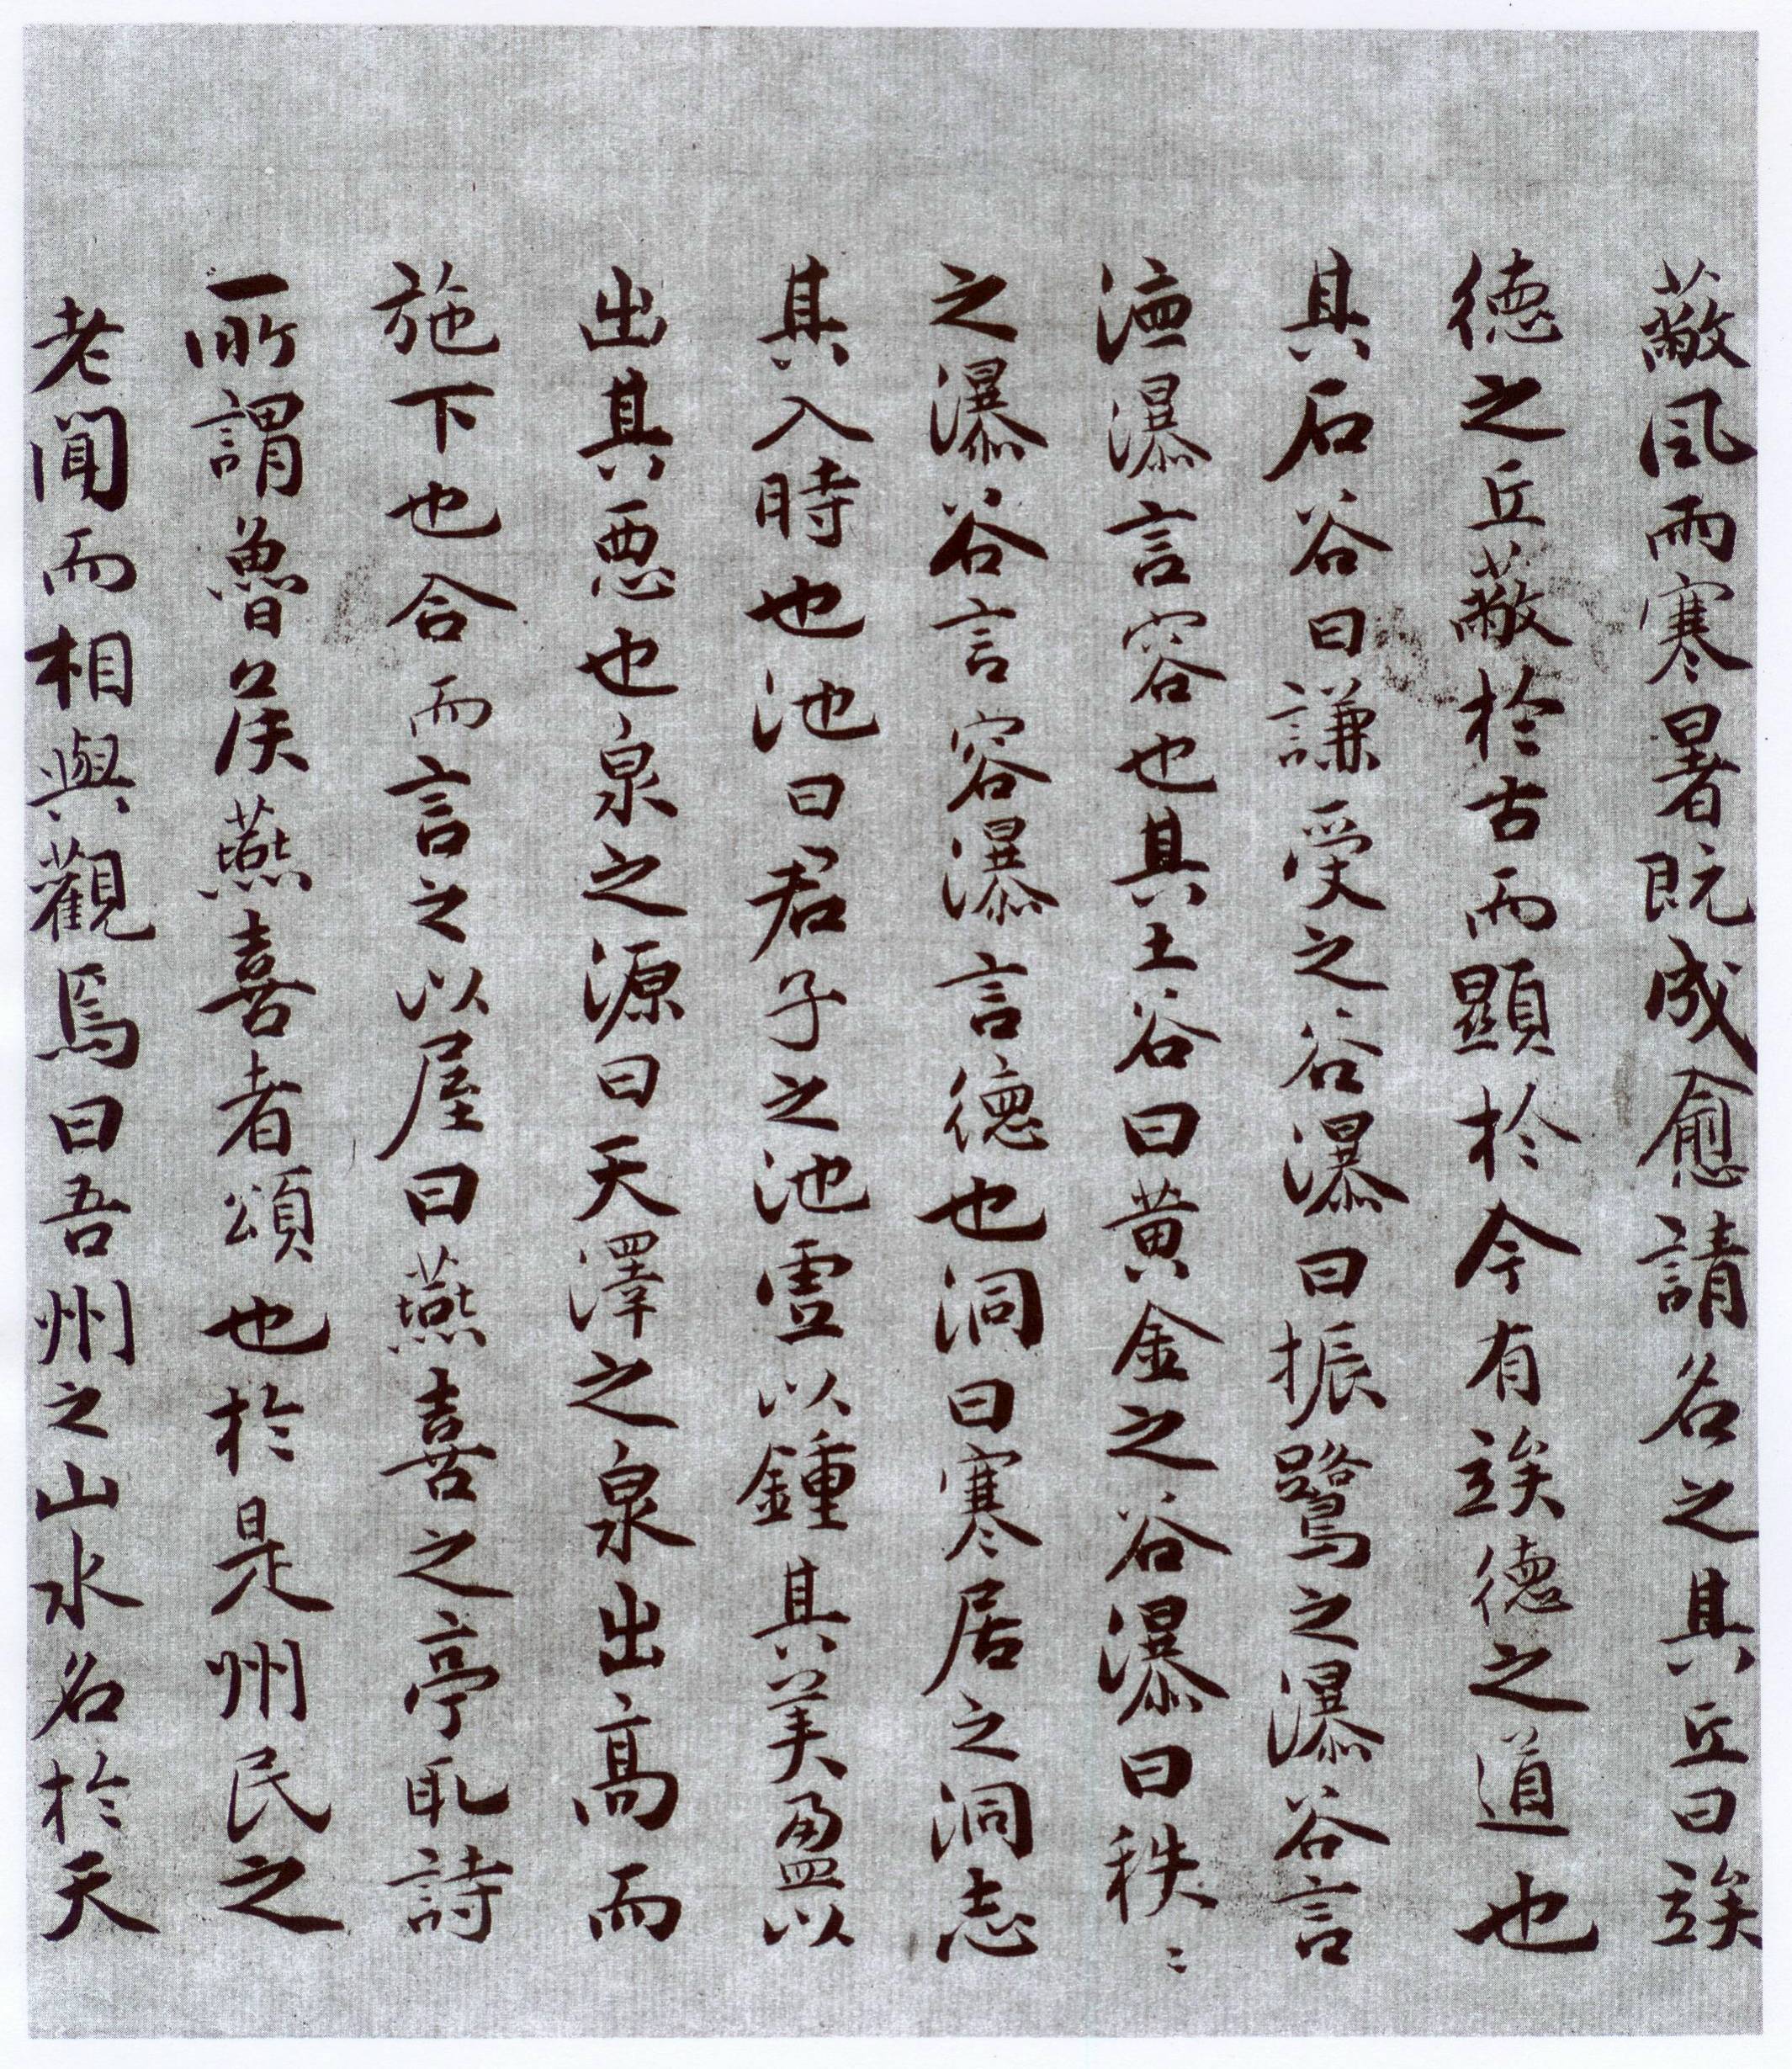 蔽風雨寒暑既成愈請名之其丘曰竢
德之丘蔽於古而顯於今有竢德之道也
其石谷曰謙受之谷瀑曰振鷺之瀑谷言
德瀑言容也其土谷曰黃金之谷瀑曰秩〻
之瀑谷言容瀑言德也洞曰寒居之洞志
其入時也池曰君子之池虛以鍾其美盈以
出其惡也泉之源曰天澤之泉出高而
施下也合而言之以屋曰燕喜之亭取詩
所謂魯侯燕喜者頌也於是州民之
老聞而相與觀焉曰吾州之山水名於天